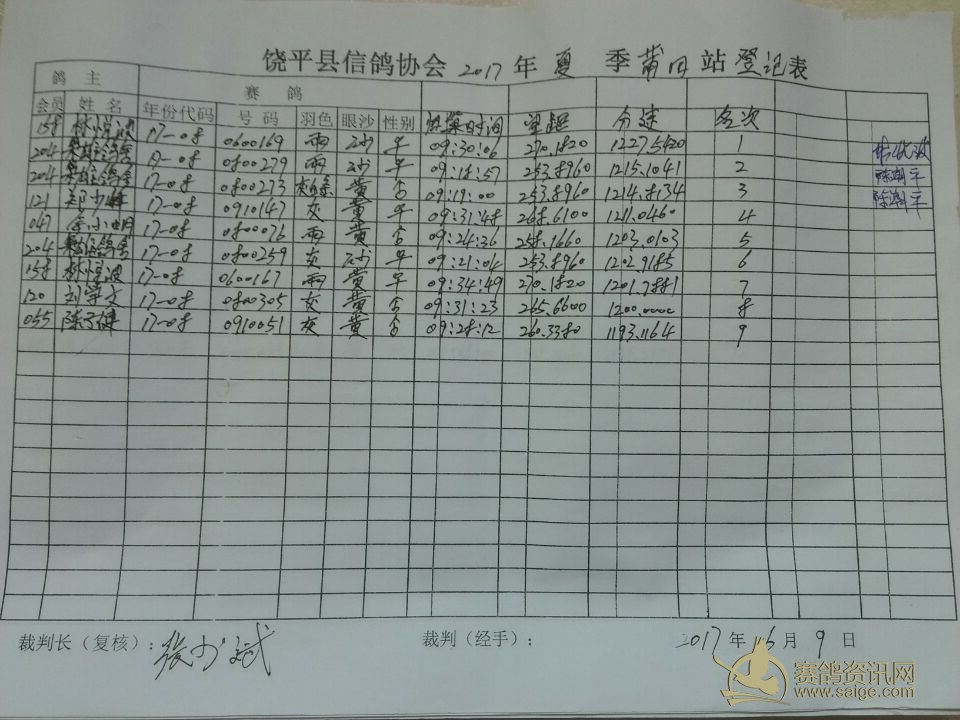 饶平县信鸽协会 2017 年 夏 季 莆田 站 登记表
鸽 主 赛 鸽
会员 姓 名 年份代码 号 码 羽色 眼沙 性别 归巢时间 空距 分速 名次
158 林 波 17-08 0600169 雨 砂 㕛 09:30:06 270.1820 1227.5420 1
204 鸽舍 17-08 0800279 雨 砂 09:18:57 253.8960 1215.1041 2
204 鸽舍 17-08 0800273 黄 09:19:00 253.8960 1214.8134 3
121 郑少 17-08 0910147 灰 黄 09:31:48 268.6100 1211.0460 4
047 余小明 17-08 0800076 雨 黄 09:24:36 258.1660 1203.0103 5
204 鸽舍 17-08 0800259 灰 砂 09:21:04 253.8960 1202.9185 6
158 林 波 17-08 0600167 雨 黄 09:34:49 270.1820 1201.7881 7
120 刘学文 17-08 0800305 灰 黄 09:31:23 265.6600 1200.0000 8
055 陈 17-08 0910051 灰 黄 09:28:12 260.3380 1193.1164 9
裁判长（复核）： 裁判（经手）： 2017 年 6 月 9 日
赛鸽资讯网
www.saigc.com